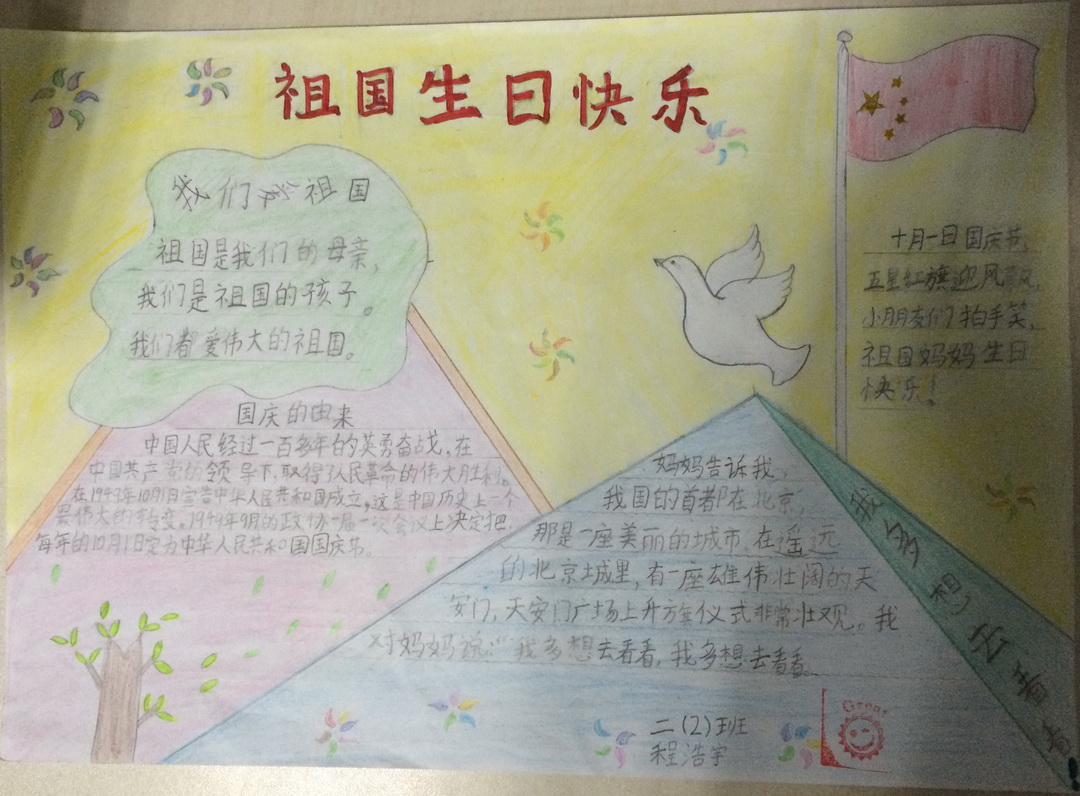 祖国生日快乐
我们爱祖国
祖国是我们的母亲,
我们是祖国的孩子。
我们都爱伟大的祖国。
十月一日国庆节,
五星红旗迎风飘,
小朋友们拍手笑,
祖国妈妈生日
快乐!
国庆的由来
中国人民经过一百多年的英勇奋战,在
中国共产党的领导下,取得了人民革命的伟大胜利。
在1949年10月1日宣告中华人民共和国成立。这是中国历史上一个
最伟大的转变。1949年9月的政协一届一次会议上决定把
每年的10月1日定为中华人民共和国国庆节。
妈妈告诉我,
我国的首都在北京,
那是一座美丽的城市,在遥远
的北京城里,有一座雄伟壮阔的天
安门,天安门广场上升旗仪式非常壮观。我
对妈妈说:"我多想去看看,我多想去看看
我多想去看看!
二(2)班
程浩宇
Great